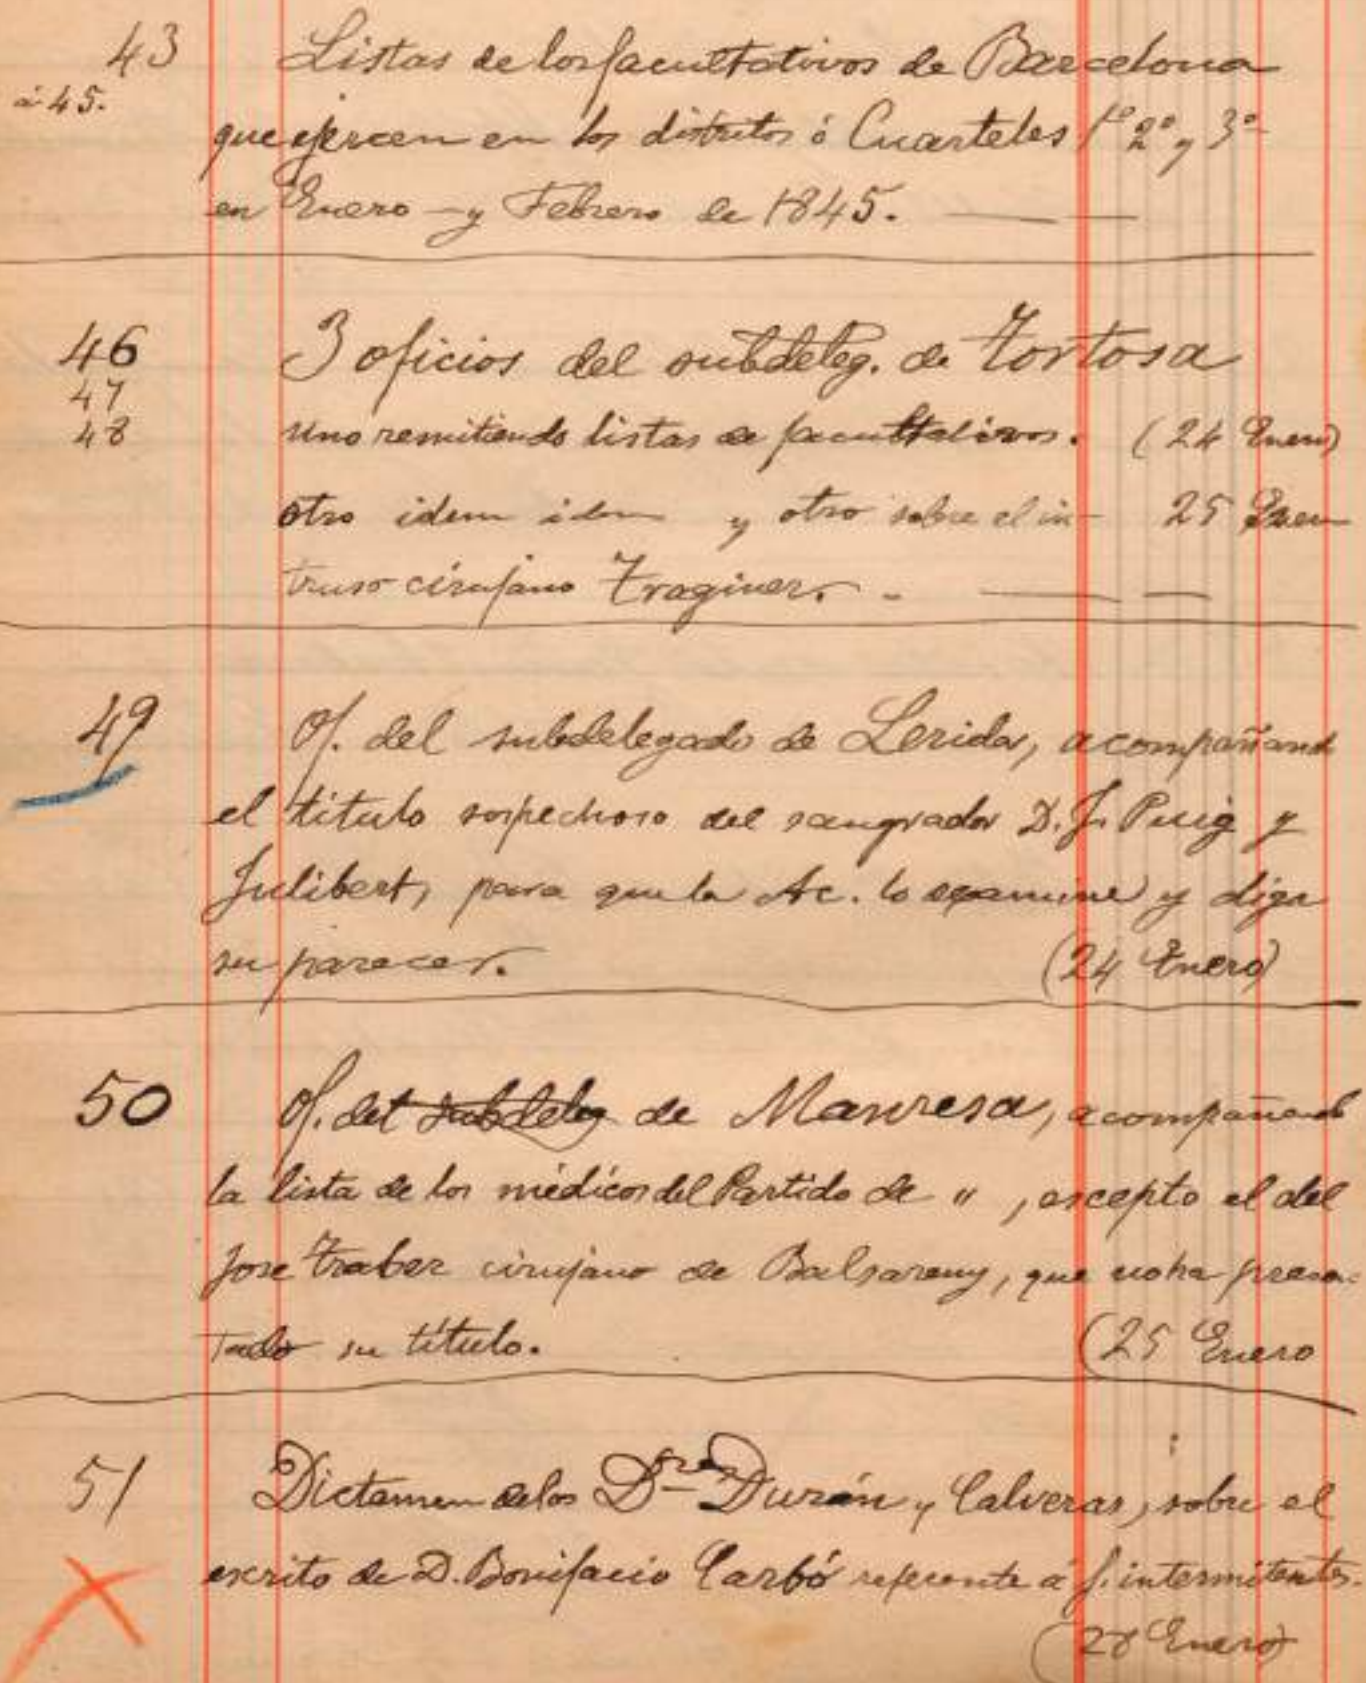 43 Listas de los facultativos de Barcelona
á 45. que ejercen en los distritos ó Cuarteles 1º 2º y 3º
en Enero y Febrero de 1845.
46 3 oficios del subdeleg. de Tortosa
47
48 uno remitiendo listas de facultativos. (24 Enero)
otro idem idem y otro sobre el in- 25 Ener
truso cirujano Traginer.
49 Of. del subdelegado de Lerida, acompañand
el titulo sospechoso del sangrador D. J. Puig y
Julibert, para que la Ac. lo examine y diga
su parecer. (24 Enero)
50 Of. del subdeleg de Manresa, acompañando
la lista de los médicos del Partido de " , escepto el del
Jose Traber cirujano de Balsareny, que no ha presen-
tado su título. (25 Enero
51 Dictamen de los Dres Durán y Calveras, sobre el
escrito de D. Bonifacio Carbó referente á f. intermitentes.
(28 Enero)